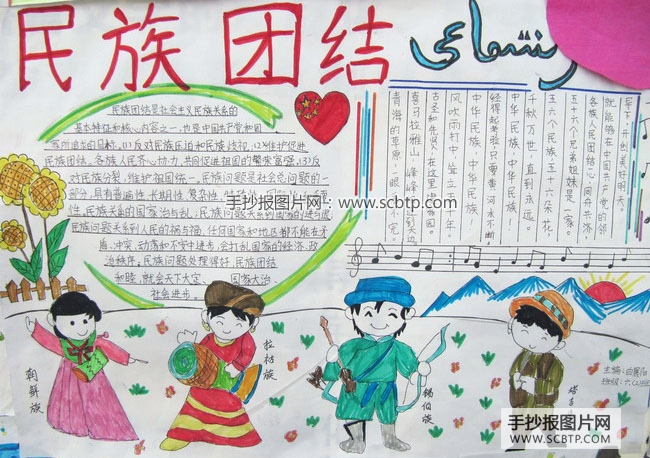 民族 团结
民族团结是社会主义民族关系的
基本特征和核心内容之一,也是中国共产党和国
家所追求的目标,(1)反对民族压迫和民族歧视,(2)维护促进
民族团结,各族人民齐心协力,共同促进祖国的繁荣富强,(3)反
对民族分裂,维护祖国统一。民族问题是社会总问题的一
部分,具有普遍性,长期性,复杂性,
性,民族关系的国家治与乱,民族问题
民族问题关系到人民的祸与福,任何国家和地区都不能在矛
盾、冲突、动荡和不安中进步,会打乱国家的经济、政
治秩序,民族问题处理得好,民族团结
和睦,就会天下大定 国家大治
社会进步
早下,开出美好明天。
就能够在中国共产党的
各族人民团结一心,同舟共济
五十六个兄弟姐妹是一家。
五十六个民族,五十六朵花,
千秋万世,直到永远。
中华民族,中华民族!
经得起考验,只要黄河水不
风吹雨打中,耸立五千年。
古圣和先贤,在这里
喜马拉雅山,峰峰
青海的草原,一眼 不完。
手抄报图片网:www.scbtp.com
朝鲜族
拉祜族
锡伯族
塔
主编:
班级:六
手抄报图片网
WWW.SCBTP.COM